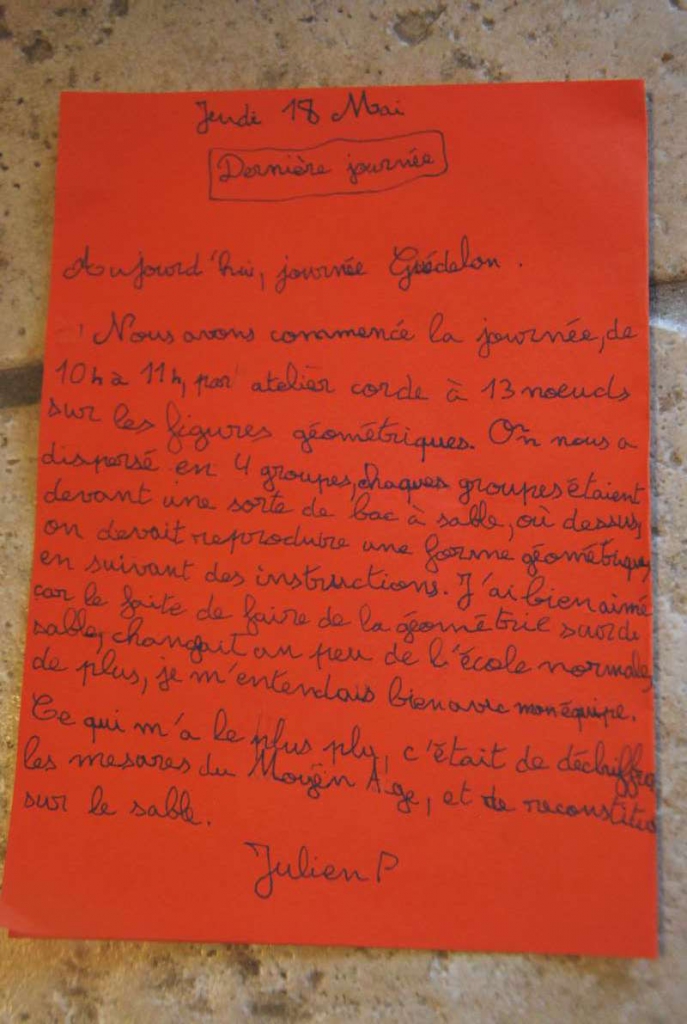 Jeudi 18 Mai
Dernière journée
Aujourd'hui, journée Guédelon.
Nous avons commencé la journée, de
10h à 11h, par atelier corde à 13 noeuds
sur les figures géométriques. On nous a
dispersé en 4 groupes, chaques groupes étaient
devant une sorte de bac à sable, où dessus,
on devait reproduire une forme géométrique,
en suivant des instructions. J'ai bien aimé
car le faite de faire de la géométrie sur du
sable, changait un peu de l'école normale,
de plus, je m'entendais bien avec mon équipe.
Ce qui m'a le plus plu, c'était de déchiffrer
les mesures du Moyen Age, et de reconstituer
sur le sable.
Julien P